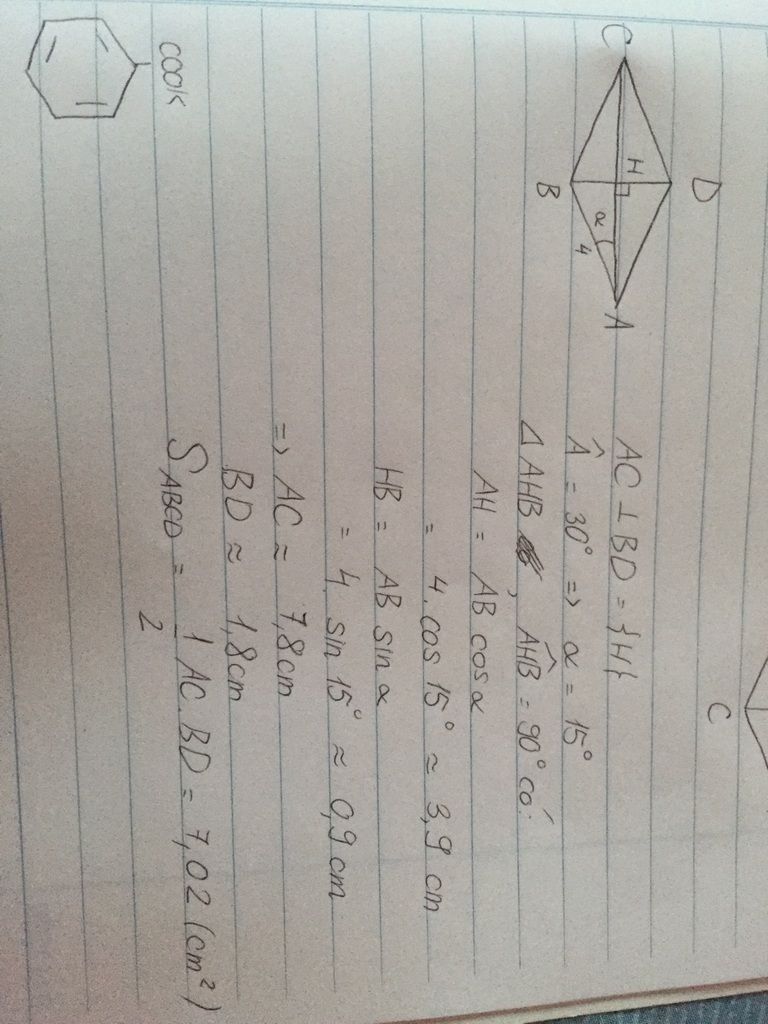 C
D
H
α
B
4
A
AC ⊥ BD = {H}
Â = 30° => α = 15°
Δ AHB , AHB̂ = 90° có:
AH = AB cosα
= 4. cos 15° ≈ 3,9 cm
HB = AB sinα
= 4. sin 15° ≈ 0,9 cm
=> AC ≈ 7,8cm
BD ≈ 1,8cm
S_ABCD = 1/2 AC.BD = 7,02 (cm²)
COOK
C